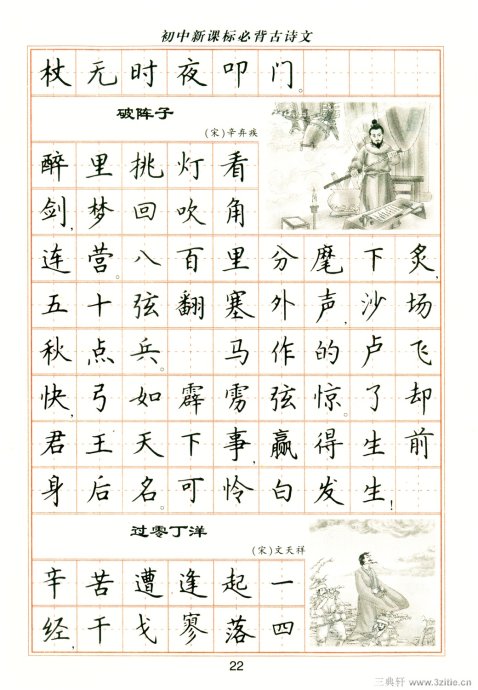 初中新课标必背古诗文
杖无时夜叩门。
破阵子
(宋)辛弃疾
醉里挑灯看
剑,梦回吹角
连营。八百里分麾下炙,
五十弦翻塞外声,沙场
秋点兵。 马作的卢飞
快,弓如霹雳弦惊。了却
君王天下事,赢得生前
身后名。可怜白发生!
过零丁洋
(宋)文天祥
辛苦遭逢起一
经,干戈寥落四
22
三典轩 www.3zitie.cn